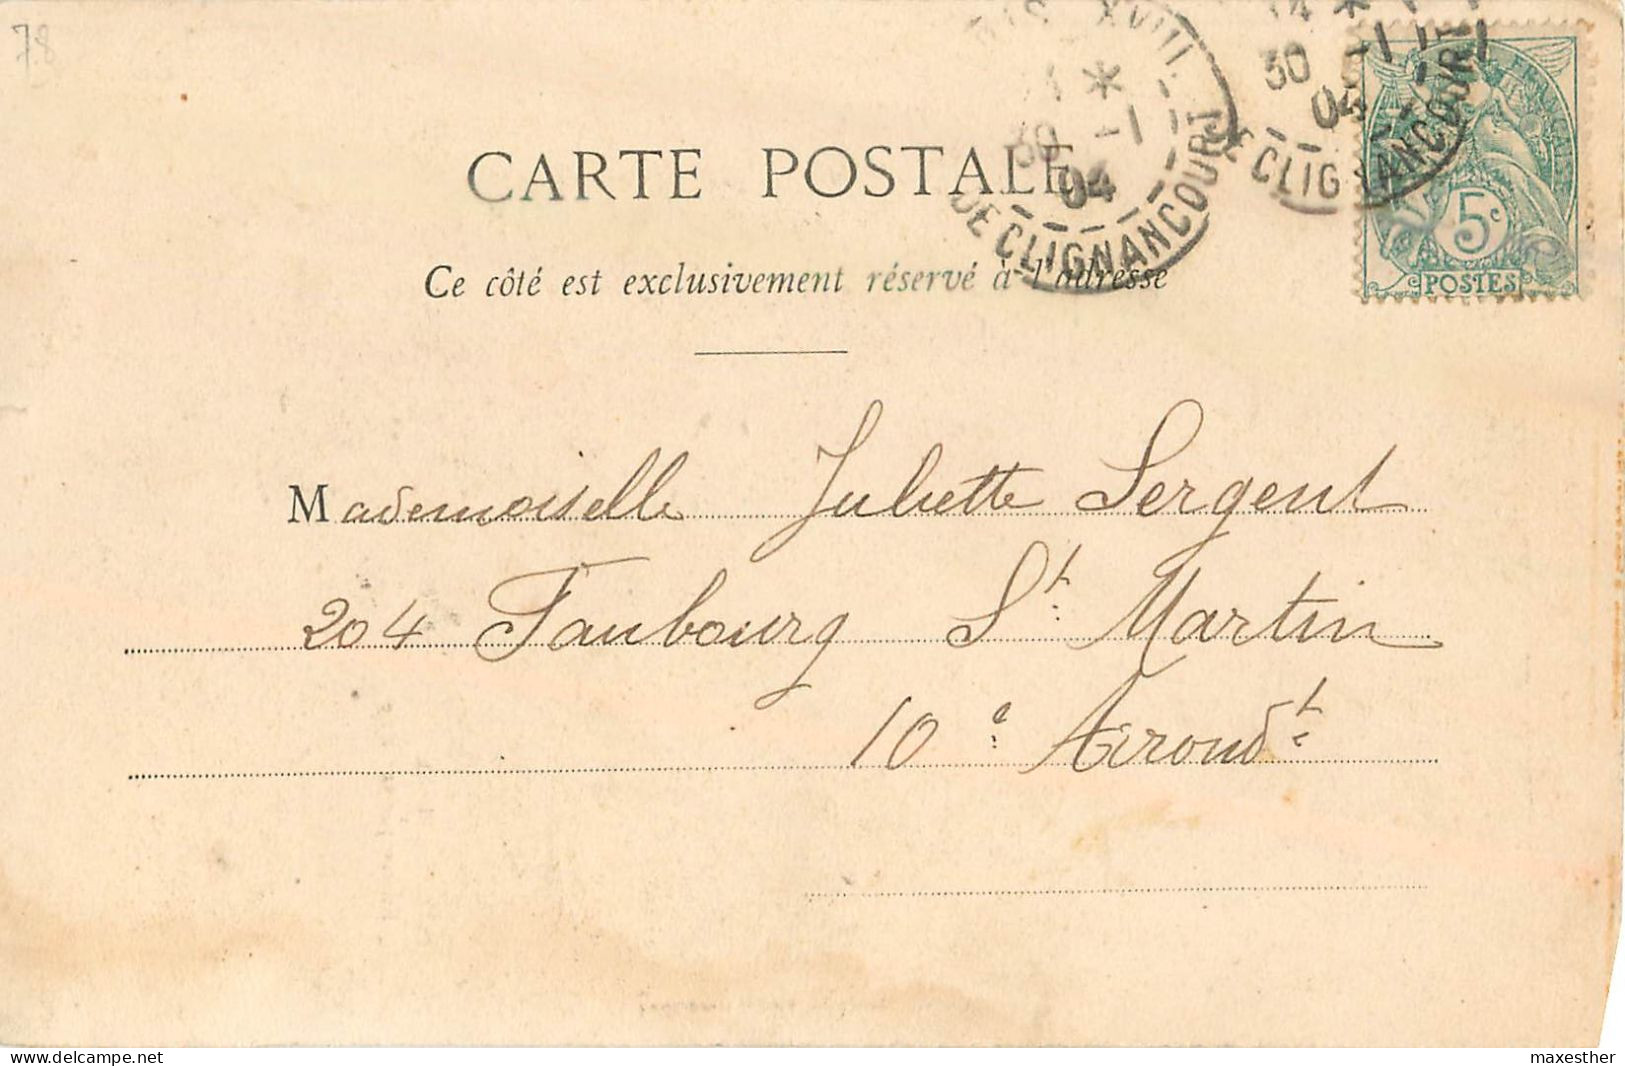 78
CARTE POSTALE
Ce côté est exclusivement réservé à l'adresse
XVIII
30
1
04
DE CLIGNANCOURT
30
04
DE CLIGNANCOURT
FRANÇAISE
5c
POSTES
Mademoiselle Juliette Sergent
204 Faubourg St Martin
10e Arrondt
www.delcampe.net
maxesther